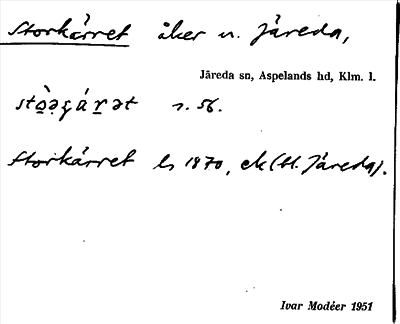 Storkärret åker n. Järeda,
Järeda sn, Aspelands hd, Klm. l.
s. 56.
Storkärret ls 1870, ek (bl. Järeda).
Ivar Modéer 1951